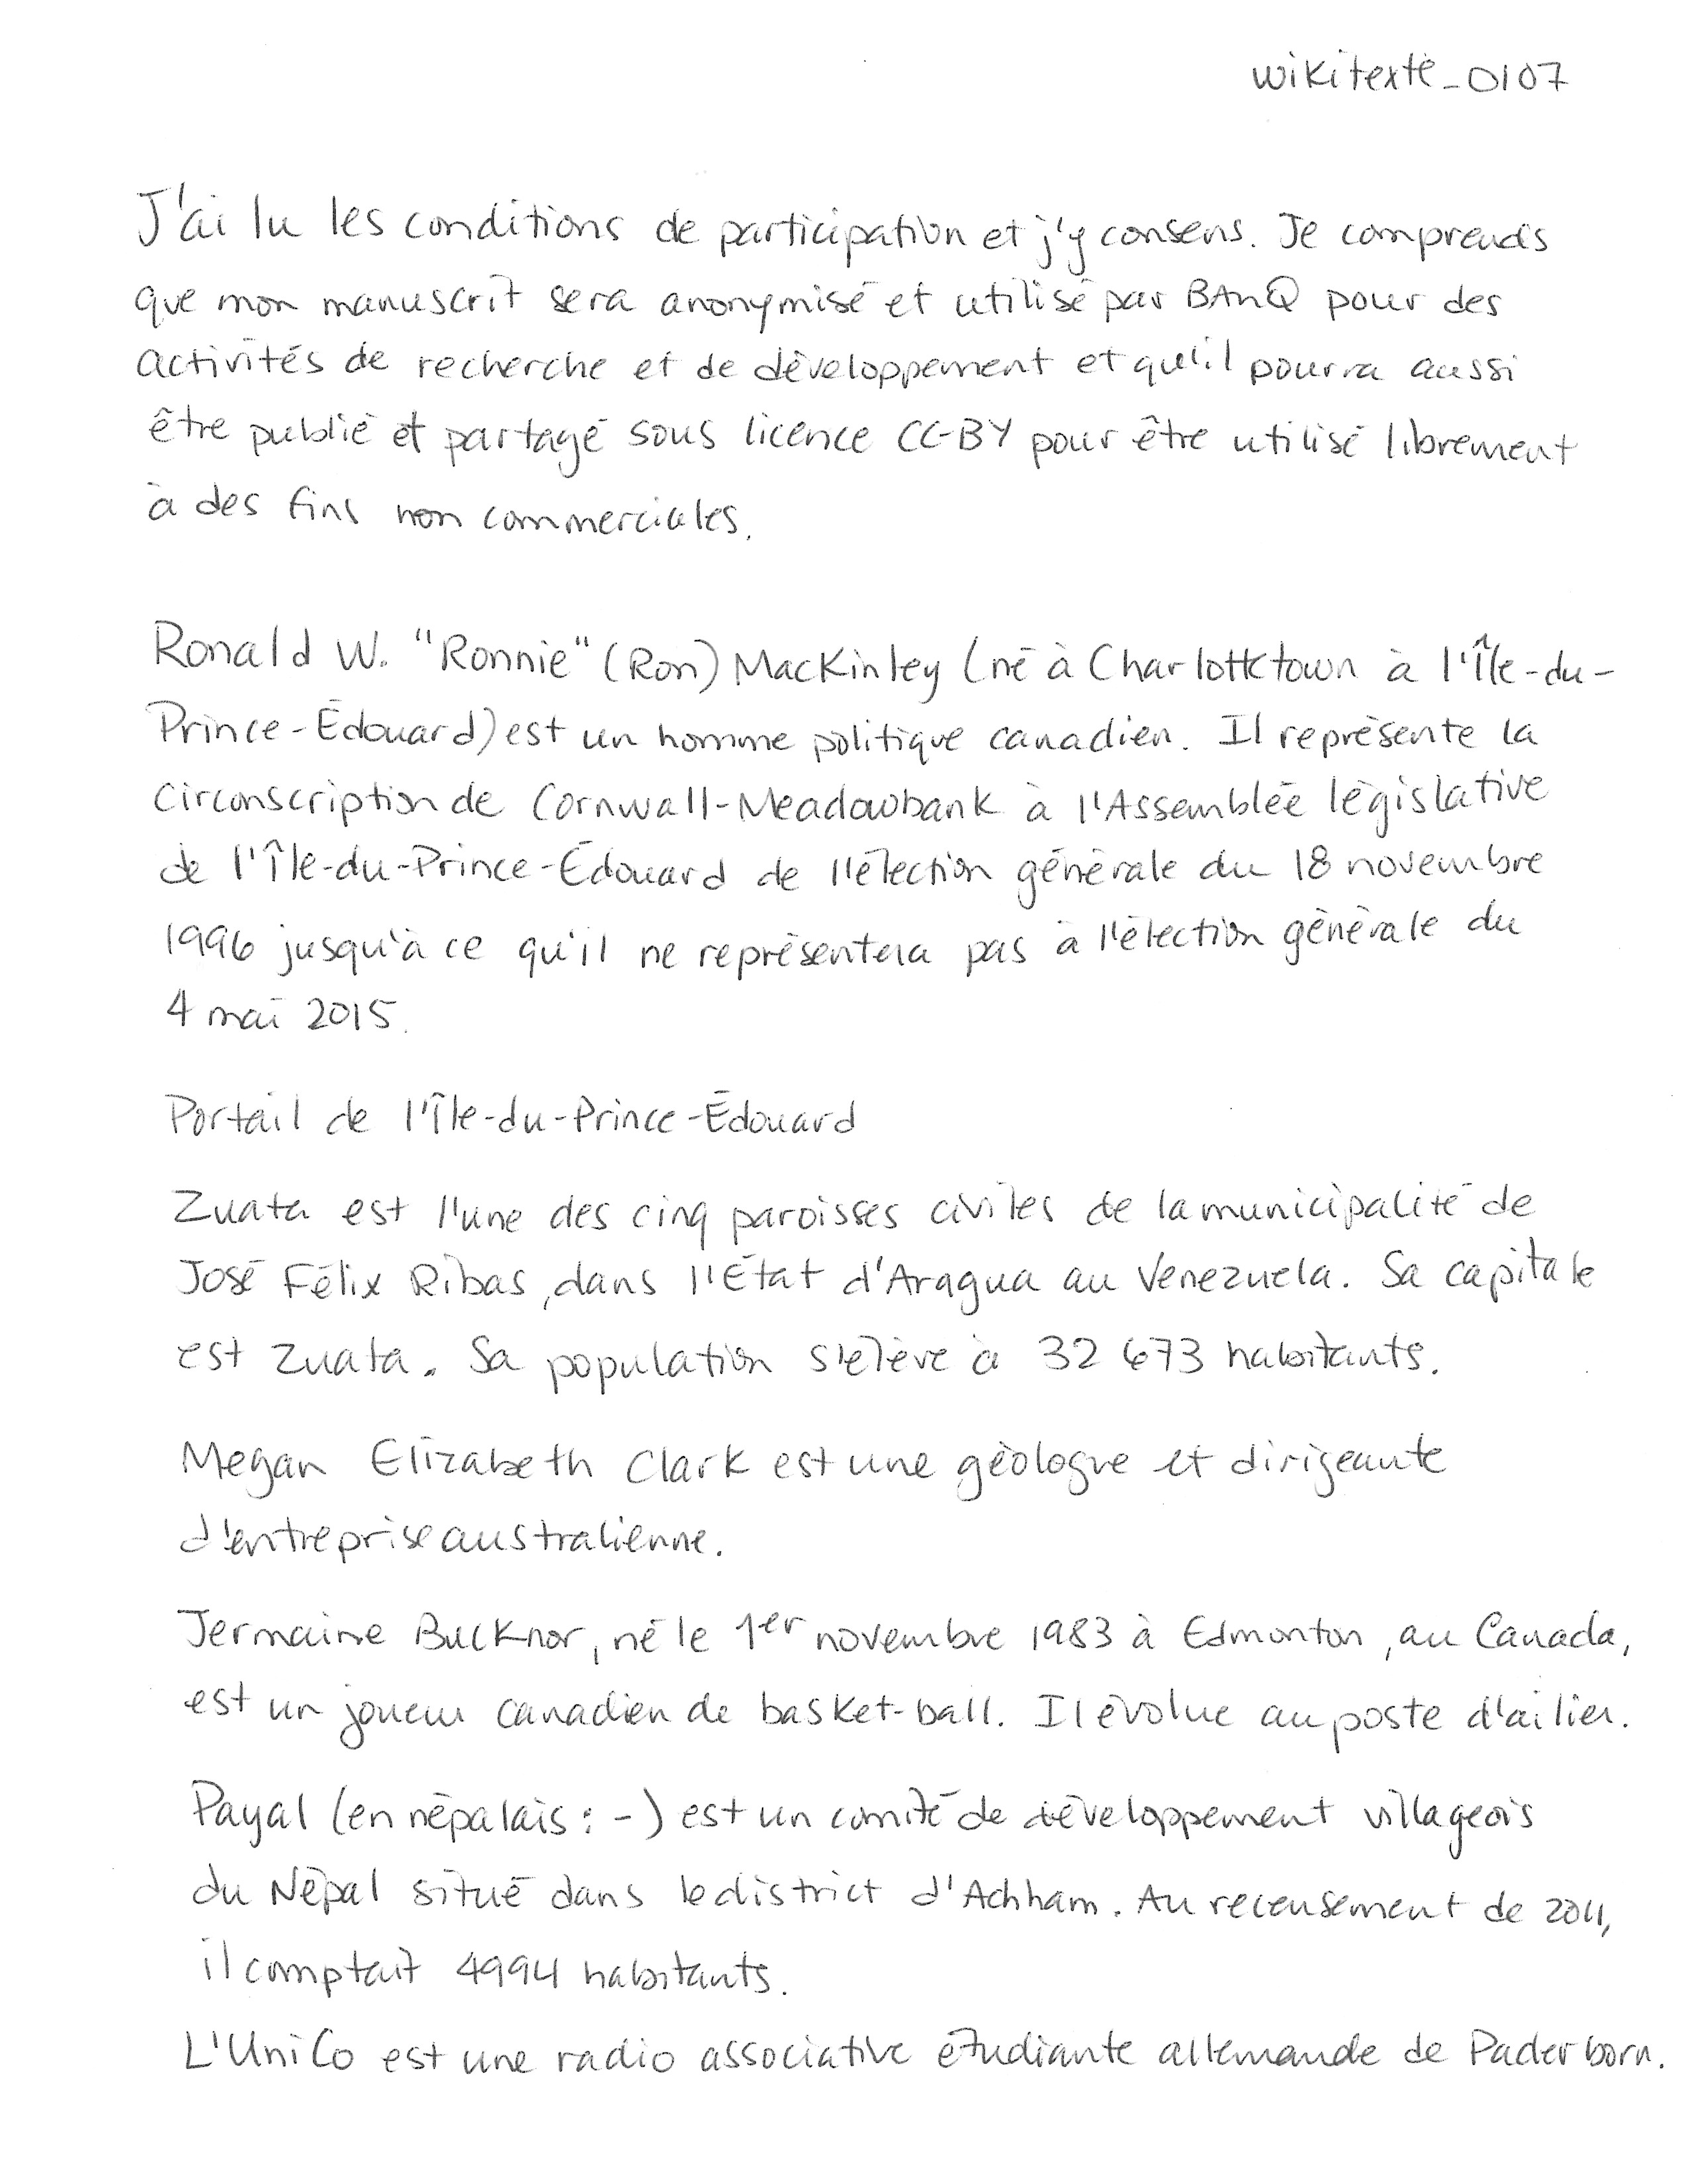 wikitexte_0107
J'ai lu les conditions de participation et j'y consens. Je comprends
que mon manuscrit sera anonymisé et utilisé par BAnQ pour des
activités de recherche et de développement et qu'il pourra aussi
être publié et partagé sous licence CC-BY pour être utilisé librement
à des fins non commerciales.
Ronald W. "Ronnie" (Ron) MacKinley (né à Charlottetown à l'Île-du-
Prince-Édouard) est un homme politique canadien. Il représente la
circonscription de Cornwall-Meadowbank à l'Assemblée législative
de l'Île-du-Prince-Édouard de l'élection générale du 18 novembre
1996 jusqu'à ce qu'il ne représentera pas à l'élection générale du
4 mai 2015.
Portail de l'Île-du-Prince-Édouard
Zuata est l'une des cinq paroisses civiles de la municipalité de
José Félix Ribas, dans l'État d'Aragua au Venezuela. Sa capitale
est Zuata. Sa population s'élève à 32 673 habitants.
Megan Elizabeth Clark est une géologue et dirigeante
d'entreprise australienne.
Jermaine Bucknor, né le 1er novembre 1983 à Edmonton, au Canada,
est un joueur canadien de basket-ball. Il évolue au poste d'ailier.
Payal (en népalais : -) est un comité de développement villageois
du Népal situé dans le district d'Achham. Au recensement de 2011,
il comptait 4994 habitants.
L'UniCo est une radio associative étudiante allemande de Paderborn.